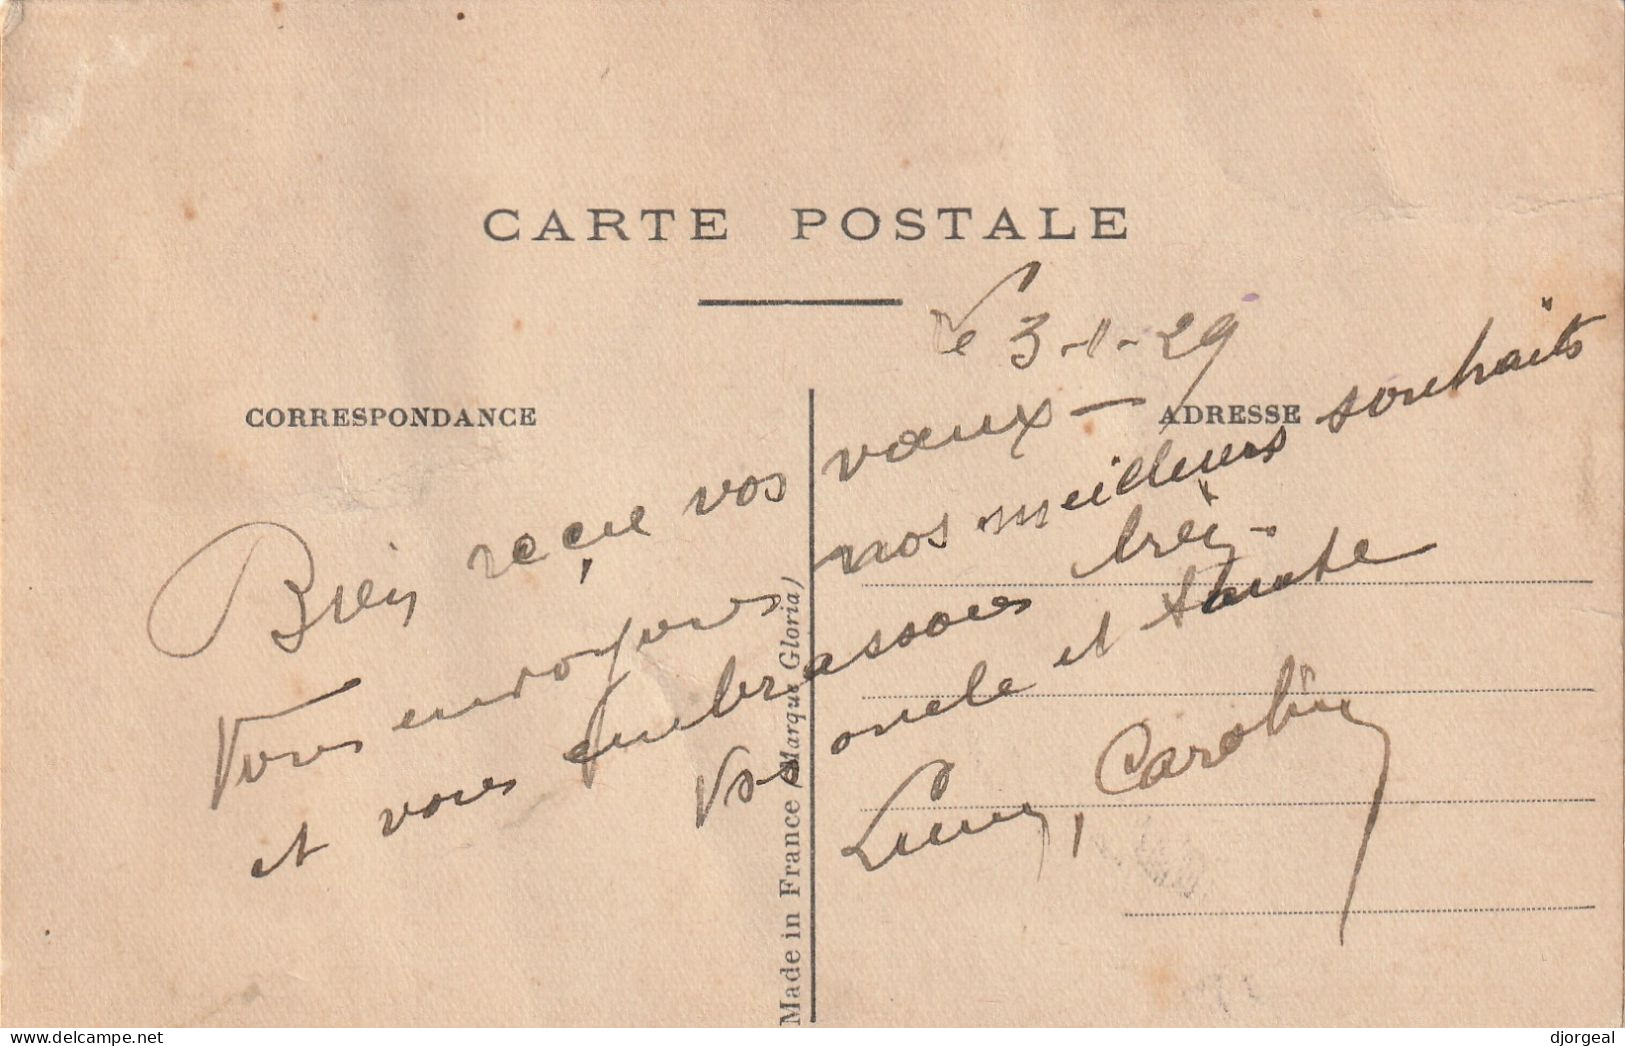 CARTE POSTALE
le 3-1-29
CORRESPONDANCE
ADRESSE
Bien reçue vos vœux —
Vous envoyons nos meilleurs souhaits
et vous embrassons bien
Vos oncle et tante
, Carolin
Made in France (Marque Gloria)
delcampe.net
djorgeal